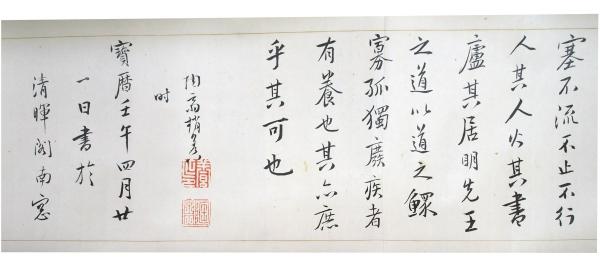 塞不流不止不行
人其人火其書
廬其居明先王
之道以道之鰥
寡孤獨廢疾者
有養也其亦庶
乎其可也
陶齋趙養
時
寶曆壬午四月廿
一日書於
清暉閣南窓